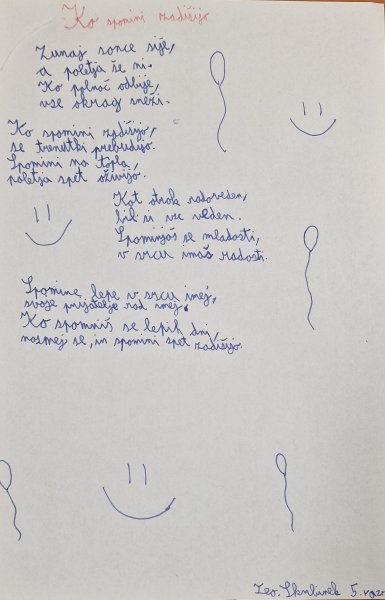 Ko spomini zadišijo
Zunaj sonce sije,
a poletja še ni.
Ko polnoč odbije,
vse okrog sneži.
Ko spomini zadišijo,
se trenutki prebudijo.
Spomini na topla,
poletja spet oživijo.
Kot otrok radoveden,
bil si vse veden.
Spominjaš se mladosti,
v srcu imaš radosti.
Spomine lepe v srcu imej,
svoje prijatelje rad imej.
Ko spomniš se lepih dni,
nasmej se, in spomini spet zadišijo.
5. razr